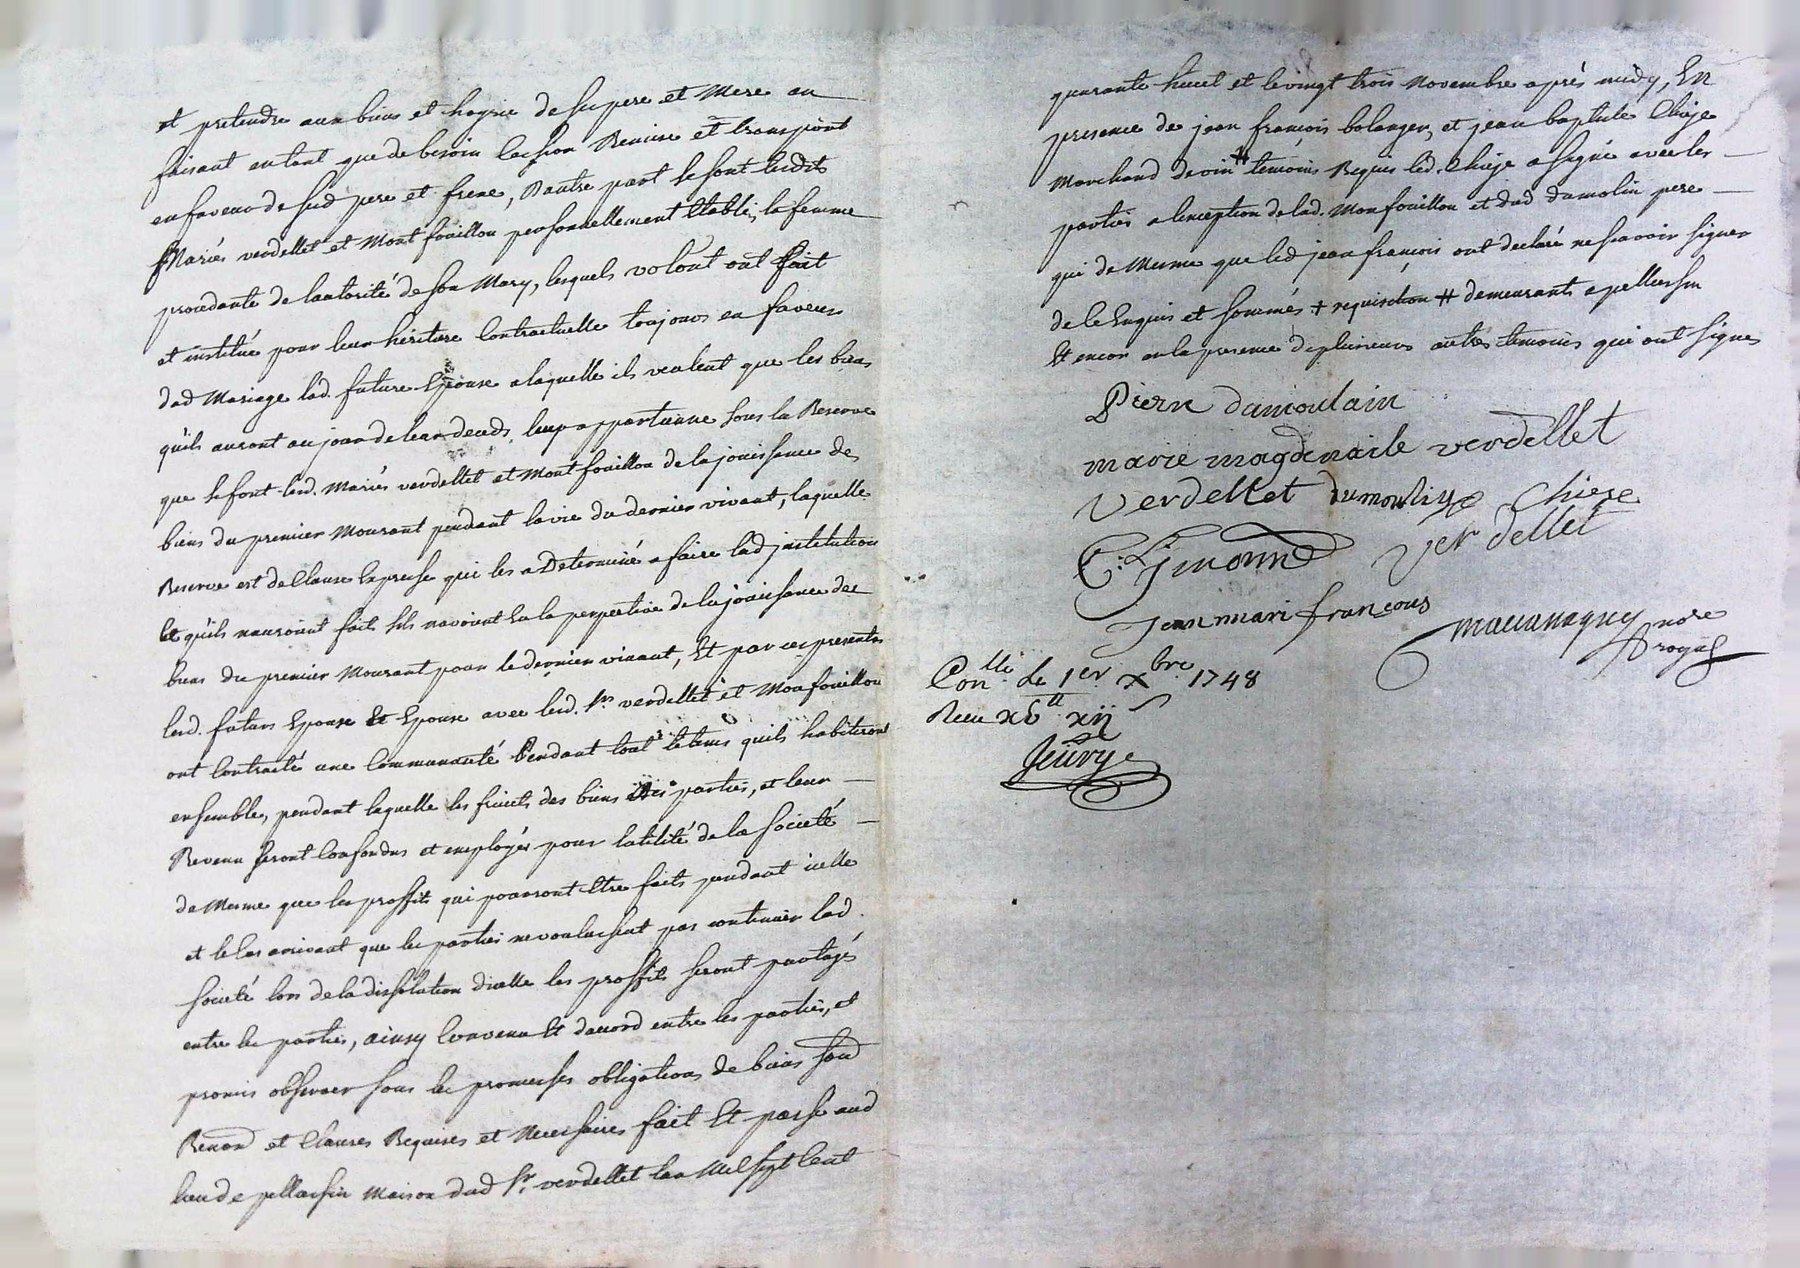 et pretendre aux biens et hoyrie de ses pere et Mere en
faisant entant que de besoin Cession Remise et transport
en faveur de sesd pere et frere, Dautre part se sont lesdits
Mariés verdellet et Montfouillou personnellement Etablis, la femme
procedante de lautorité de son Mary, lesquels volont ont fait
et institué pour leur héritiere Contractuelle toujours en faveur
dud Mariage lad. future Epouse a laquelle ils veulent que les biens
quils auront au jour de leur deceds, leur appartienne sous la Reserve
que se font lesd. Mariés verdellet et Montfouillou de la jouissance des
biens du premier Mourant pendant la vie du dernier vivant, laquelle
Reserve est de Clause Expresse qui les a Determiné a faire lad institution
Et quils nauroient fait sils navoient Eu la perspective de la jouissance des
biens du premier Mourant pour le dernier vivant, Et par ces presentes
lesd. futurs Epoux Et Epouse avec lesd. Srs verdellet et Monfouillou
ont Contracté une Communauté Pendant tout le tems quils habiteront
ensemble, pendant laquelle les fruits des biens des parties, et leur
Revenu seront Confondus et employés pour lutilité de la societé
de Mesme que les proffits qui pourront Etre faits pendant icelle
et le Cas arrivant que les parties ne voulussent pas continuer lad.
societé lors de la dissolution dicelle les proffits seront partagés
entre les parties, ainsy Convenu Et dacord entre les parties, et
promis observer sous les promesses obligations de biens soûd
Renoñ et Clauses Requises et Necessaires fait Et passé aud
lieu de pellussin Maison dud Sr. verdellet lan Mil sept Cent
quarante huit et le vingt trois novembre aprés midy, En
presence de jean françois bolanger, et jean baptiste Chieze
Marchand de vin # temoins Requis led. Chieze a signé avec les
parties a lexception de lad. Monfouillou et dud dumolin pere
qui de Mesme que led jean françois ont declaré ne scavoir signer
de ce Enquis et sommés + requisition # demeurants a pellussin
Et encor en la presence de plusieurs autres temoins qui ont signes
Piere dumoulain
marie magdenaile verdellet
Verdellet dumoulin Chieze
C. Simonne verdellet
Jean mari françous
nore
Con.lle le 1er Xbre 1748
Receu xii
Jeûry